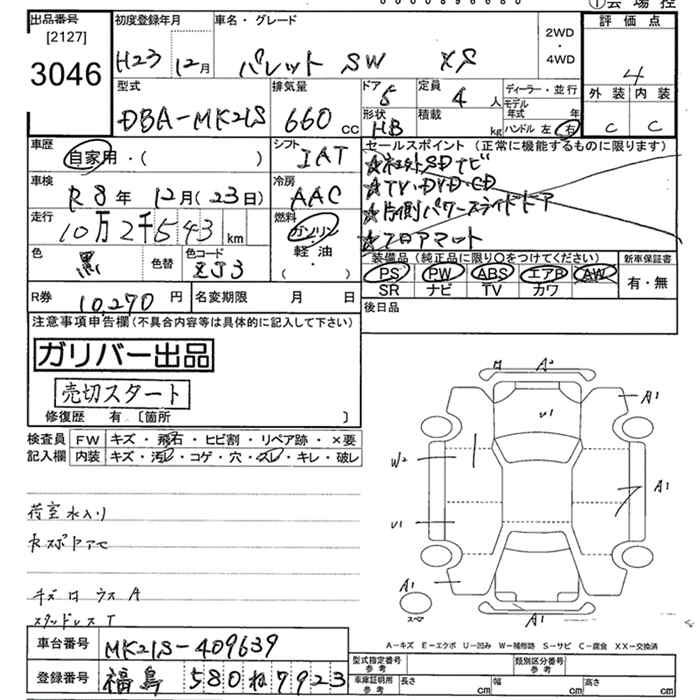 ① 会 場 控
出品番号
[2127]
3046
初度登録年月
H23 12月
車名・グレード
パレット SW XS
2WD
・
4WD
評 価 点
4
外 装 内 装
C C
型式
DBA-MK21S
排気量
660 cc
ドア
5
形状
HB
定員
4 人
積載
kg
ディーラー・並行
モデル年式 年
ハンドル 左 右
車歴
自家用・( )
シフト
IAT
車検
R8年 12月(23日)
冷房
AAC
走行
10万2千543 km
燃料
ガソリン
軽 油
( ・ )
色
黒
色替
色コード
ZJ3
R券
10,270 円
名変期限 月 日
セールスポイント (正常に機能するものに限ります)
★社外SDナビ
★TV・DVD・CD
★片側パワースライドドア
★フロアマット
装備品(純正品に限り○をつけてください)
PS PW ABS エアB AW
SR ナビ TV カワ
新車保証書
有・無
後日品
注意事項申告欄(不具合内容等は具体的に記入して下さい)
ガリバー出品
売切スタート
修復歴 有 〔箇所 〕
検査員
記入欄
FW キズ・飛石・ヒビ割・リペア跡・×要
内装 キズ・汚レ・コゲ・穴・スレ・キレ・破レ
荷室水入り
キズ ロ ウス A
スタッドレス T
A2
U1
A1
W2
A1
U1
A1
A1
スペア
A-キズ E-エクボ U-凹み W-補修跡 S-サビ C-腐食 XX-交換済
車台番号
MK21S-409639
登録番号
福島 580 ね 7923
型式指定番号
参考
類別区分番号
参考
車庫証明用
参考
長さ cm 幅 cm 高さ cm